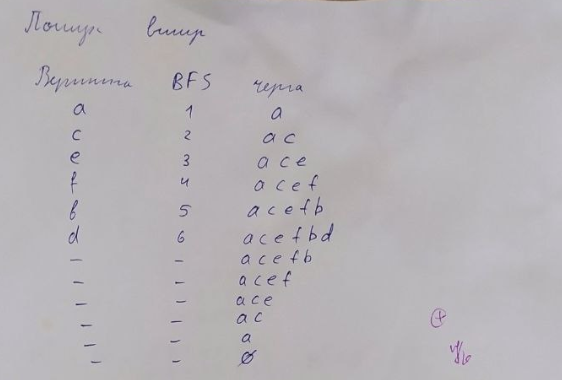 Пошук вшир
Вершина BFS черга
a 1 a
c 2 a c
e 3 a c e
f 4 a c e f
b 5 a c e f b
d 6 a c e f b d
– – a c e f b
– – a c e f
– – a c e
– – a c
– – a
– – ∅
+